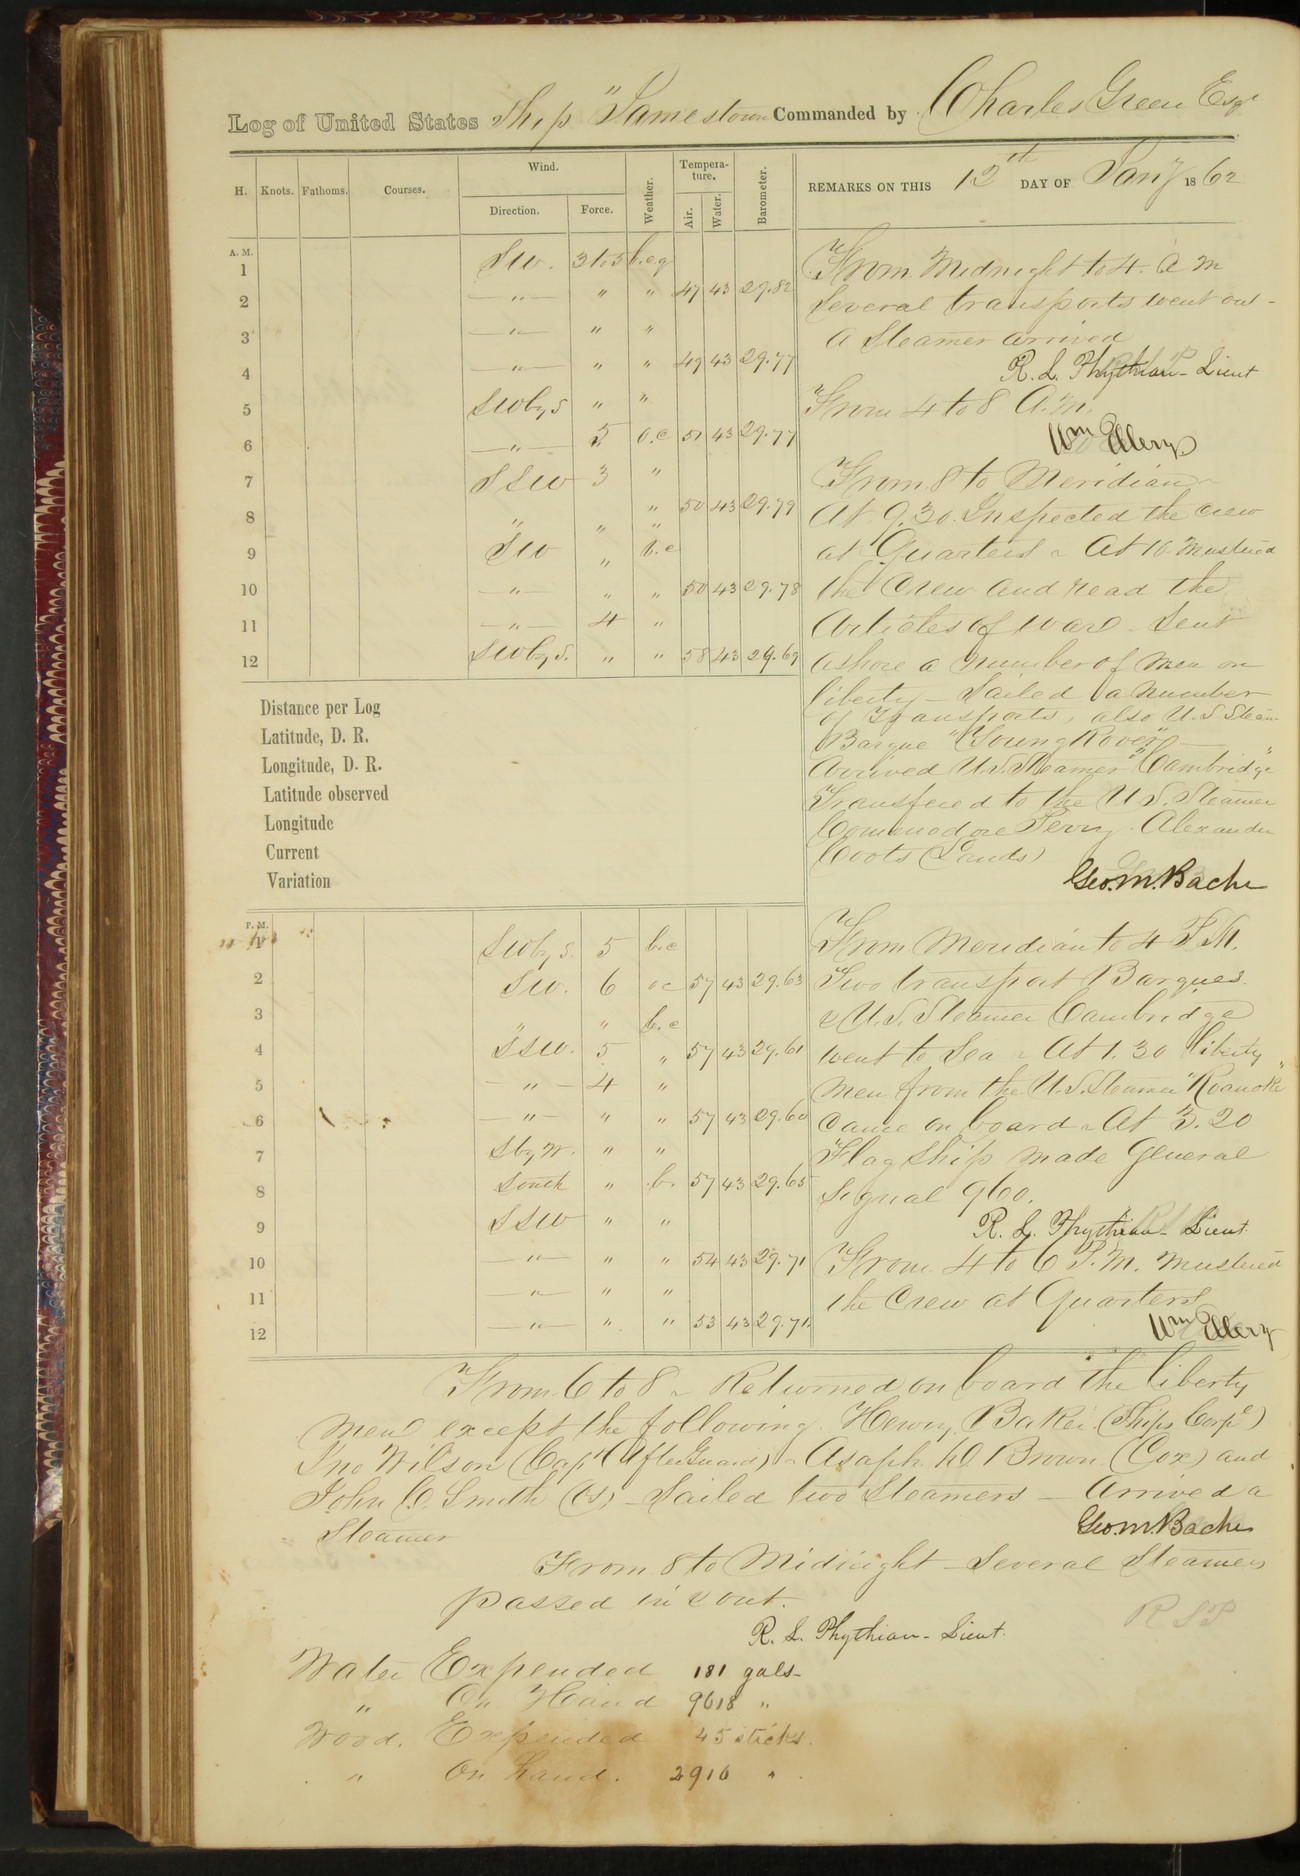 Log of United States Ship "Jamestown Commanded by Charles Green Esqr
H. Knots. Fathoms. Courses. Wind. Direction. Force. Weather. Tempera-ture. Air. Water. Barometer. REMARKS ON THIS 12th DAY OF Jany 1862
A. M.
1 SW. 3 to 5 b.c.q
2 " " " 47 43 29.82
3 " " "
4 " " " 49 43 29.77
5 SWbyS " "
6 " 5 o.c 51 43 29.77
7 SSW 3 "
8 " " " 50 43 29.79
9 SW " b.c
10 " " " 50 43 29.78
11 " 4 "
12 SWbyS. " " 58 43 29.69
From Midnight to 4. A M
Several transports went out -
a Steamer arrived
R. L. Phythian - Lieut
From 4 to 8 A.M.
Wm Ellery
From 8 to Meridian
At 9.30 Inspected the crew
at Quarters - At 10 mustered
the Crew and read the
Articles of War - Sent
ashore a number of men on
liberty - Sailed a number
of Transports, also U.S Steam
Barque "Young Rover" -
Arrived U.S. Steamer "Cambridge"
Transfered to the U.S. Steamer
Comenodore Perry. Alexander
Coots (Lands)
Geo. M. Bache
Distance per Log
Latitude, D. R.
Longitude, D. R.
Latitude observed
Longitude
Current
Variation
P. M.
1 SWbyS. 5 b.c
2 SW. 6 oc 57 43 29.63
3 " " b.c
4 SSW. 5 " 57 43 29.61
5 " 4 "
6 " " " 57 43 29.60
7 SbyW. " "
8 South " b. 57 43 29.65
9 SSW " "
10 " " " 54 43 29.71
11 " " "
12 " " " 53 43 29.71.
From Meridian to 4 P.M.
Two transport Barques
& U.S. Steamer Cambridge
went to Sea - At 1.30 liberty
men from the U.S. Steamer "Roanoke"
came on board - At 3.20
Flag Ship made General
Signal 960.
R. L. Phythian - Lieut
From 4 to 6 P.M. mustered
the Crew at Quarters
Wm Ellery
From 6 to 8 - Returned on board the liberty
men except the following. Henry Baker (Ships Corpl)
Jno Wilson (Capt After Guard) - Asaph. D. Brown (Cox) and
John C. Smith (S) - Sailed two Steamers - Arrived a
Steamer
Geo. M. Bache
From 8 to Midnight - Several Steamers
passed in & out.
R. L. Phythian - Lieut.
Water Expended 181 gals -
" On Hand 9618 "
Wood. Expended 45 sticks.
" On hand. 2916 "